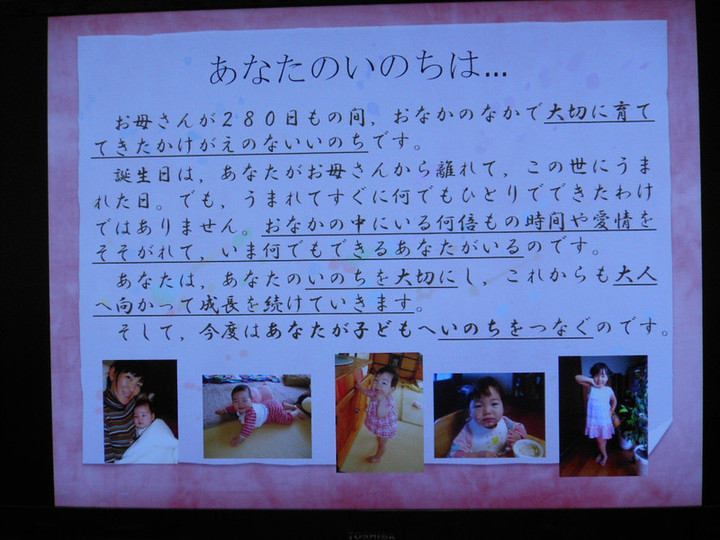 あなたのいのちは…
お母さんが２８０日もの間，おなかのなかで大切に育て
てきたかけがえのないいのちです。
誕生日は，あなたがお母さんから離れて，この世にうま
れた日。でも，うまれてすぐに何でもひとりでできたわけ
ではありません。おなかの中にいる何倍もの時間や愛情を
そそがれて，いま何でもできるあなたがいるのです。
あなたは，あなたのいのちを大切にし，これからも大人
へ向かって成長を続けていきます。
そして，今度はあなたが子どもへいのちをつなぐのです。
TOSHIBA